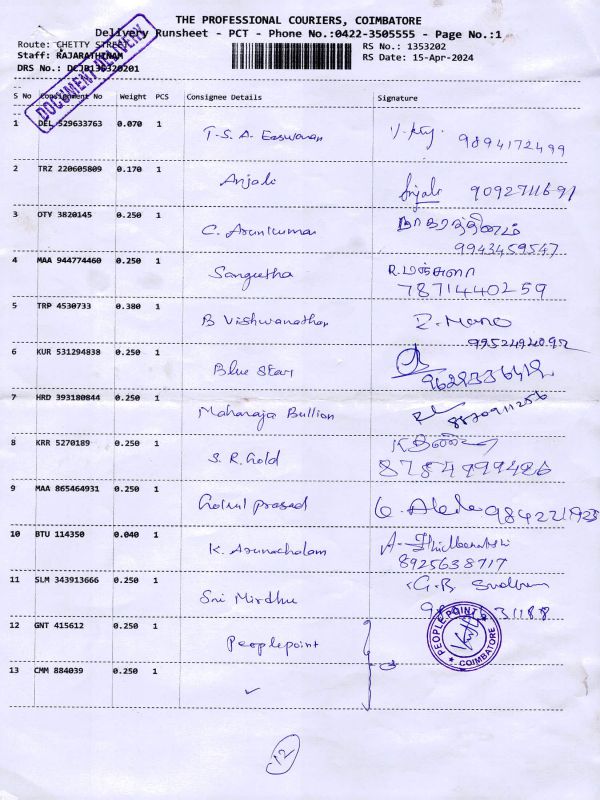 THE PROFESSIONAL COURIERS, COIMBATORE
Delivery Runsheet - PCT - Phone No.:0422-3505555 - Page No.:1
Route: CHETTY STREET
RS No.: 1353202
Staff: RAJARATHINAM
RS Date: 15-Apr-2024
DRS No.:
DOCUMENT DELIVERY
S No Consignment No Weight PCS Consignee Details Signature
1 DEL 529633763 0.070 1 T.S.A. Easwaran 9894172499
2 TRZ 220605809 0.170 1 Anjali Anjali 9092711691
3 OTY 3820145 0.250 1 C. Arunkumar
9943459547
4 MAA 944774460 0.250 1 Sangutha R.மஞ்சுளா
7871440259
5 TRP 4530733 0.380 1 B Vishwanathan R. Mano
9952494092
6 KUR 531294838 0.250 1 Blue Star
7 HRD 393180844 0.250 1 Maharaja Bullion
8870911256
8 KRR 5270189 0.250 1 S.R. Gold
8754999486
9 MAA 865464931 0.250 1 Gokul prasad 9842211925
10 BTU 114350 0.040 1 K. Arunachalam
8925638717
11 SLM 343913666 0.250 1 Sri Mirdhu G.B.
31188
12 GNT 415612 0.250 1 Peoplepoint
PEOPLE POINT
COIMBATORE
13 CMM 884039 0.250 1
12